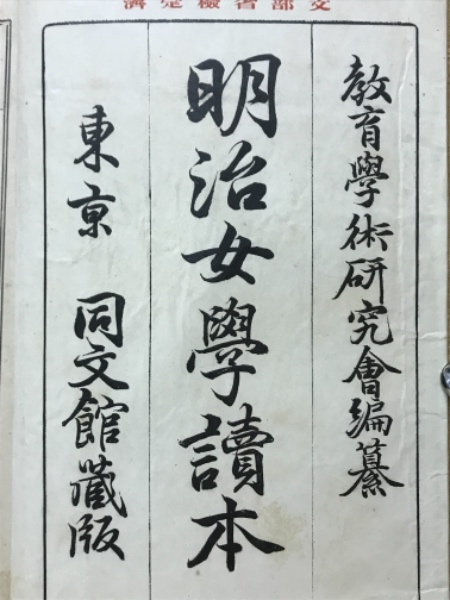 文部省檢定濟
教育學術研究會編纂
明治女學讀本
東京 同文館藏版